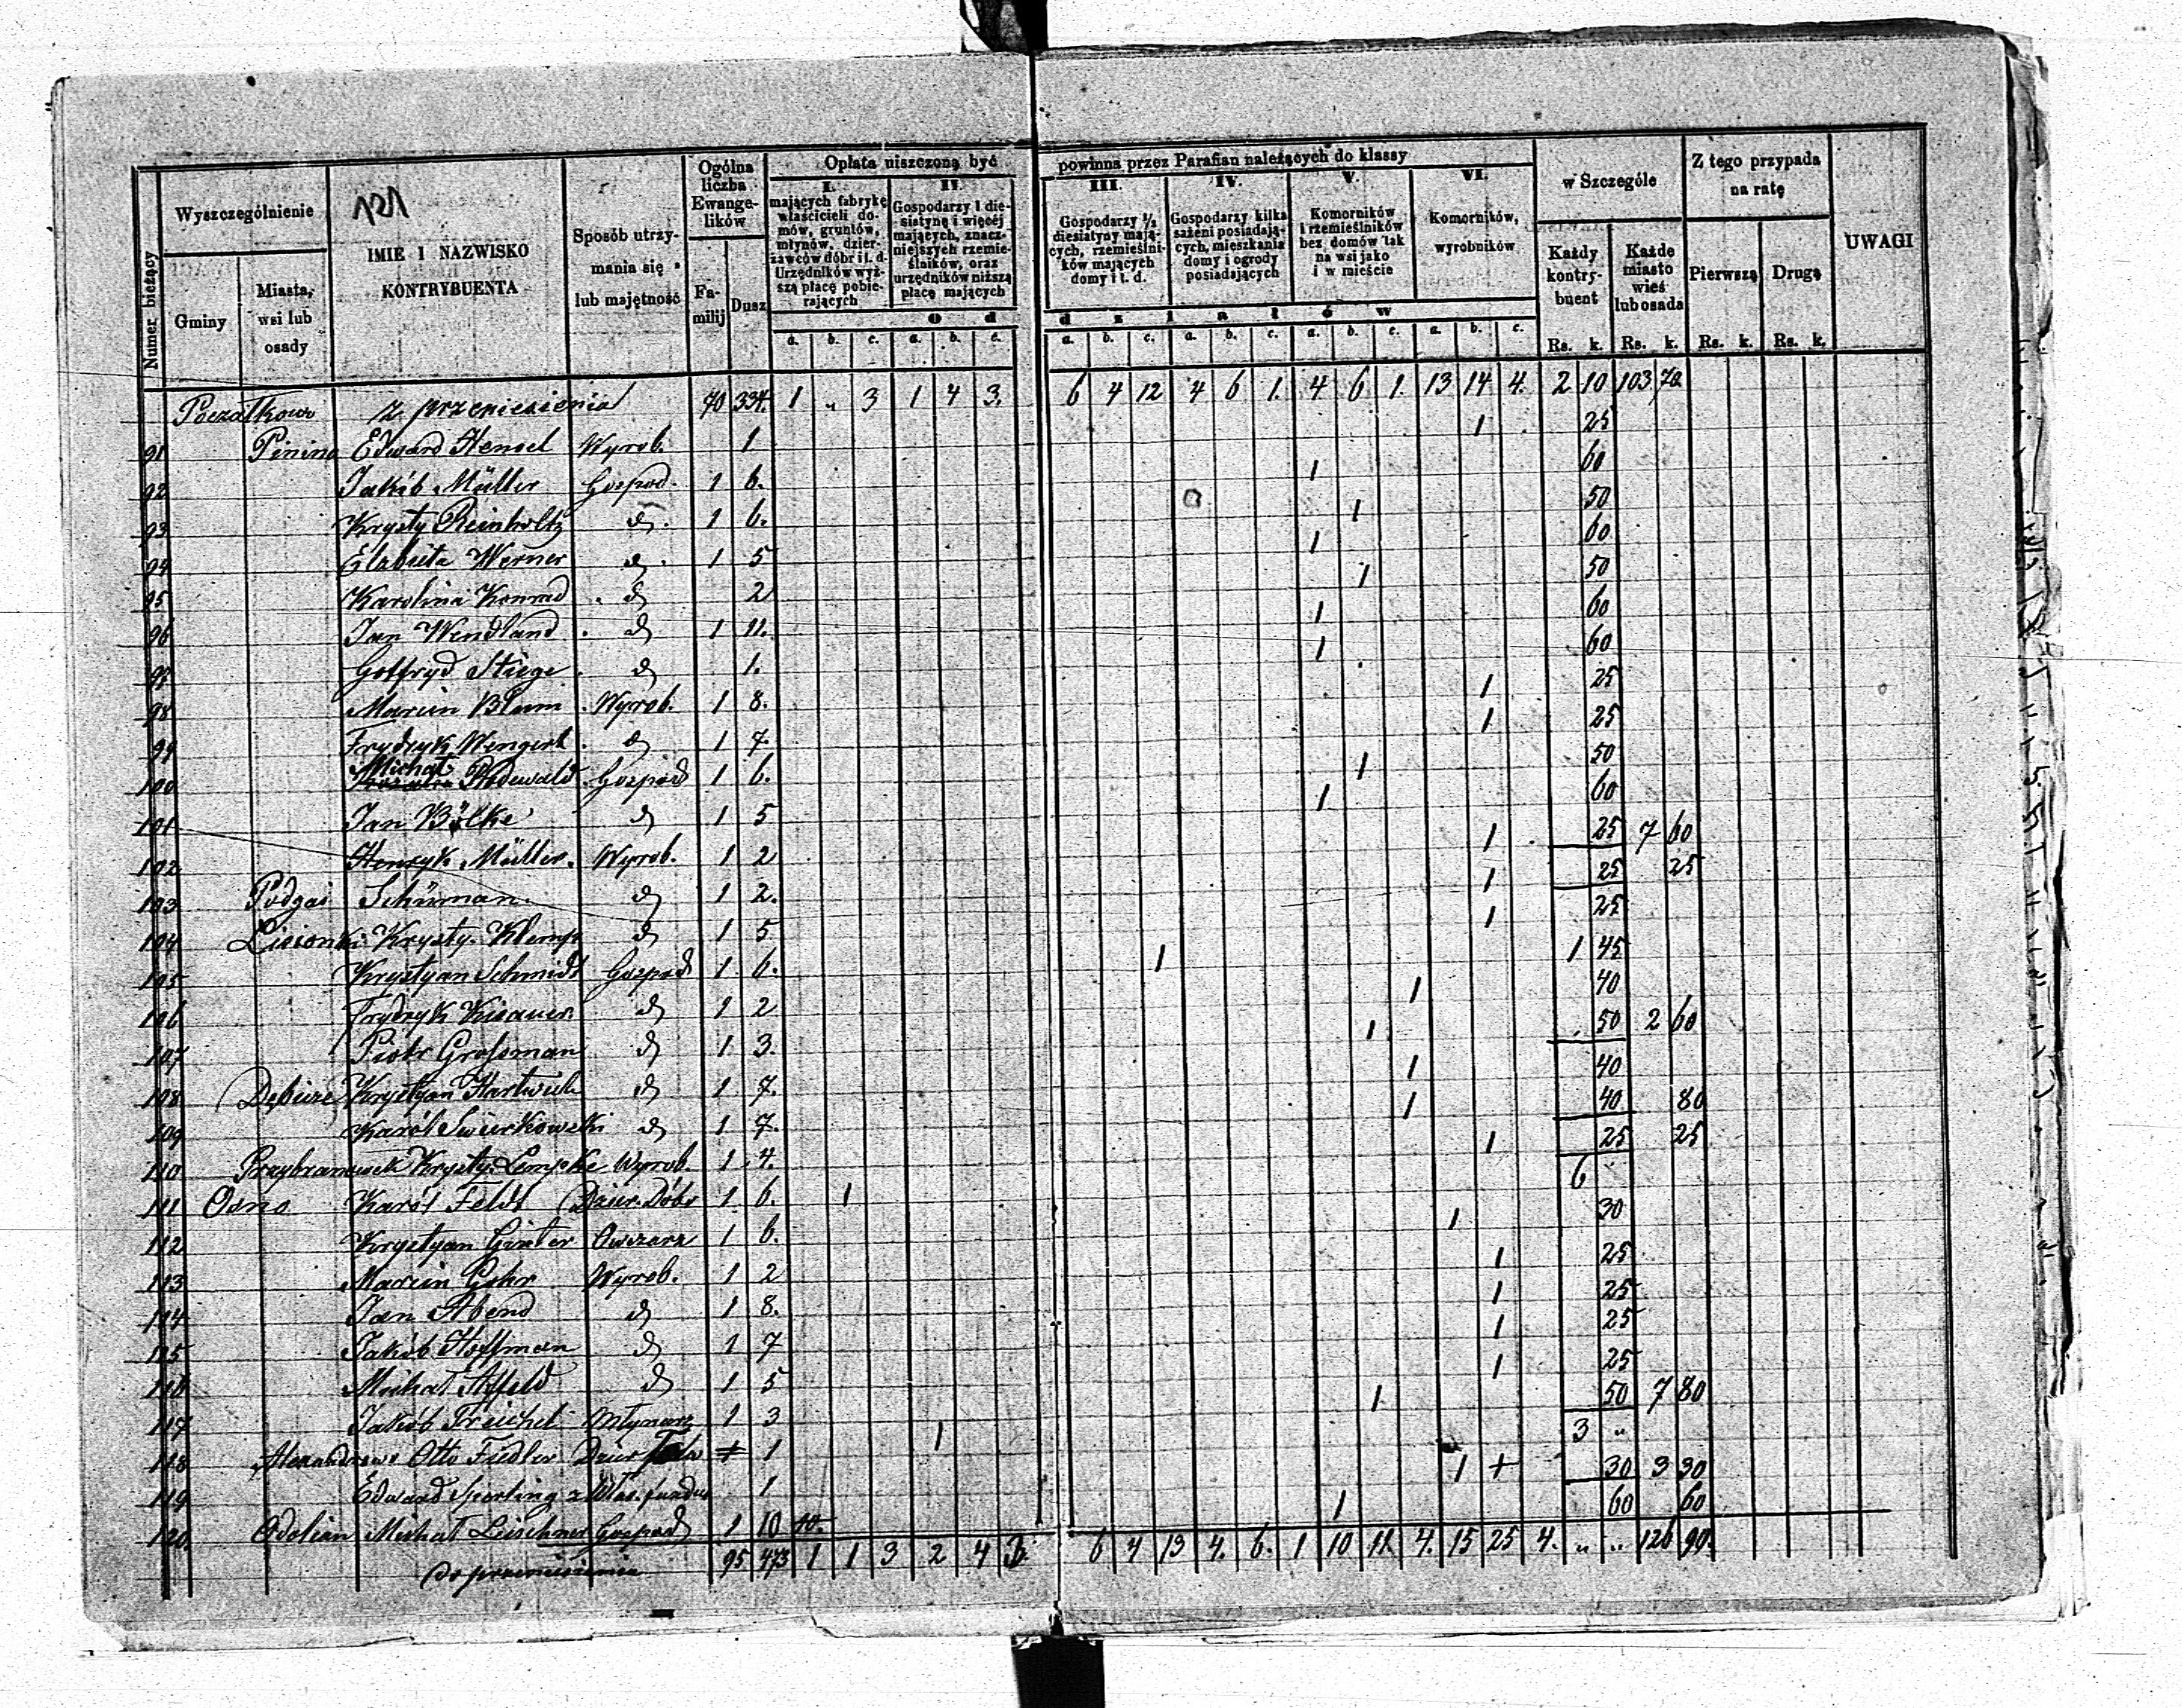 121
Numer bieżący
Wyszczególnienie
Gminy
Miasta, wsi lub osady
IMIE I NAZWISKO KONTRYBUENTA
Sposób utrzymania się lub majętność
Ogólna liczba Ewangelików
Familij
Dusz
Opłata niszczoną być powinna przez Parafian należących do klassy
I. mających fabrykę właścicieli domów, gruntów, młynów, dzierzawców dóbr i t. d. Urzędników wyższą płacę pobierających
II. Gospodarzy 1 diesiatynę i więcéj mających, znaczniejszych rzemieślników, oraz urzędników niższą płacę mających
III. Gospodarzy ½ diesiatyny mających, rzemieślników mających domy i t. d.
IV. Gospodarzy kilka sażeni posiadających, mieszkania domy i ogrody posiadających
V. Komorników i rzemieślników bez domów tak na wsi jako i w mieście
VI. Komorników, wyrobników
o d d z i a ł ó w
a. b. c. a. b. c. a. b. c. a. b. c. a. b. c. a. b. c.
w Szczególe
Każdy kontrybuent
Każde miasto wieś lub osada
Z tego przypada na ratę
Pierwszą
Drugą
UWAGI
Rs. k. Rs. k. Rs. k. Rs. k.
Poczałkowo z przeniesienia 70 334. 1 „ 3 1 4 3. 6 4 12 4 6 1. 4 6 1. 13 14 4. 2 10 103 70
91 Pinino Edward Hensel Wyrob. 1 1 25
92 Jakób Müller Gospod. 1 6. 1 60
93 Krysty Reinholtz d. 1 6. 1 50
94 Elzbieta Werner d. 1 5 1 60
95 Karolina Konrad d 2 1 50
96 Jan Wendland d 1 11. 1 60
97 Gottfryd Stiege d 1. 1 60
98 Marcin Blum Wyrob. 1 8. 1 25
99 Frydryk Wengert d 1 7. 1 25
100 Michał Podewald Gospod 1 6. 1 50
101 Jan Bölke d 1 5 1 60
102 Henryk Müller Wyrob. 1 2 1 25 7 60
103 Podgai Schürman d 1 2. 1 25 25
104 Lisionki Krysty. Klemp d 1 5 1 25
105 Krystyan Schmidt Gospod 1 6. 1 1 45
106 Frydryk Kisauer d 1 2 1 40
107 Piotr Grossman d 1 3. 1 50 2 60
108 Krystyan Hartwich d 1 7. 1 40
109 Karól Swierkowski d 1 7. 1 40 80
110 Krysty. Lempke Wyrob. 1 4. 1 25 25
111 Osno Karól Feldt Dzier. Dóbr 1 6. 1 6 „
112 Krystyan Ginter Owczarz 1 6. 1 30
113 Marcin Gohr Wyrob. 1 2 1 25
114 Jan Abend d 1 8. 1 25
115 Jakób Hoffman d 1 7 1 25
116 Michał Affeld d 1 5 1 25
117 Jakób Treichel Młynarz 1 3 1 50 7 80
118 Alexandrowo Otto Fiedler Dzier 1 1 3 „
119 Edward Sperling z Włas. fundus 1 1 + 30 3 30
120. Adolian Michał Leischner Gospod 1 10 1 60 60
do przeniesienia 95 473 1 1 3 2 4 3. 6 4 13 4. 6. 1 10 11. 4. 15 25 4. „ „ 126 90.